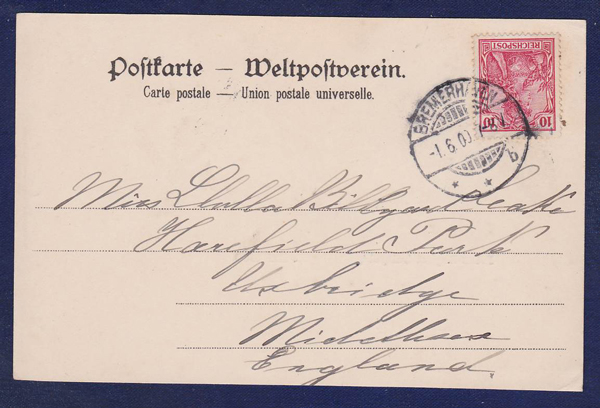 Postkarte — Weltpostverein.
Carte postale — Union postale universelle.
REICHSPOST
10 10
BREMERHAVEN
-1.6.00.
b.
Miss
Harefield Park
Uxbridge
Middlesex
England.